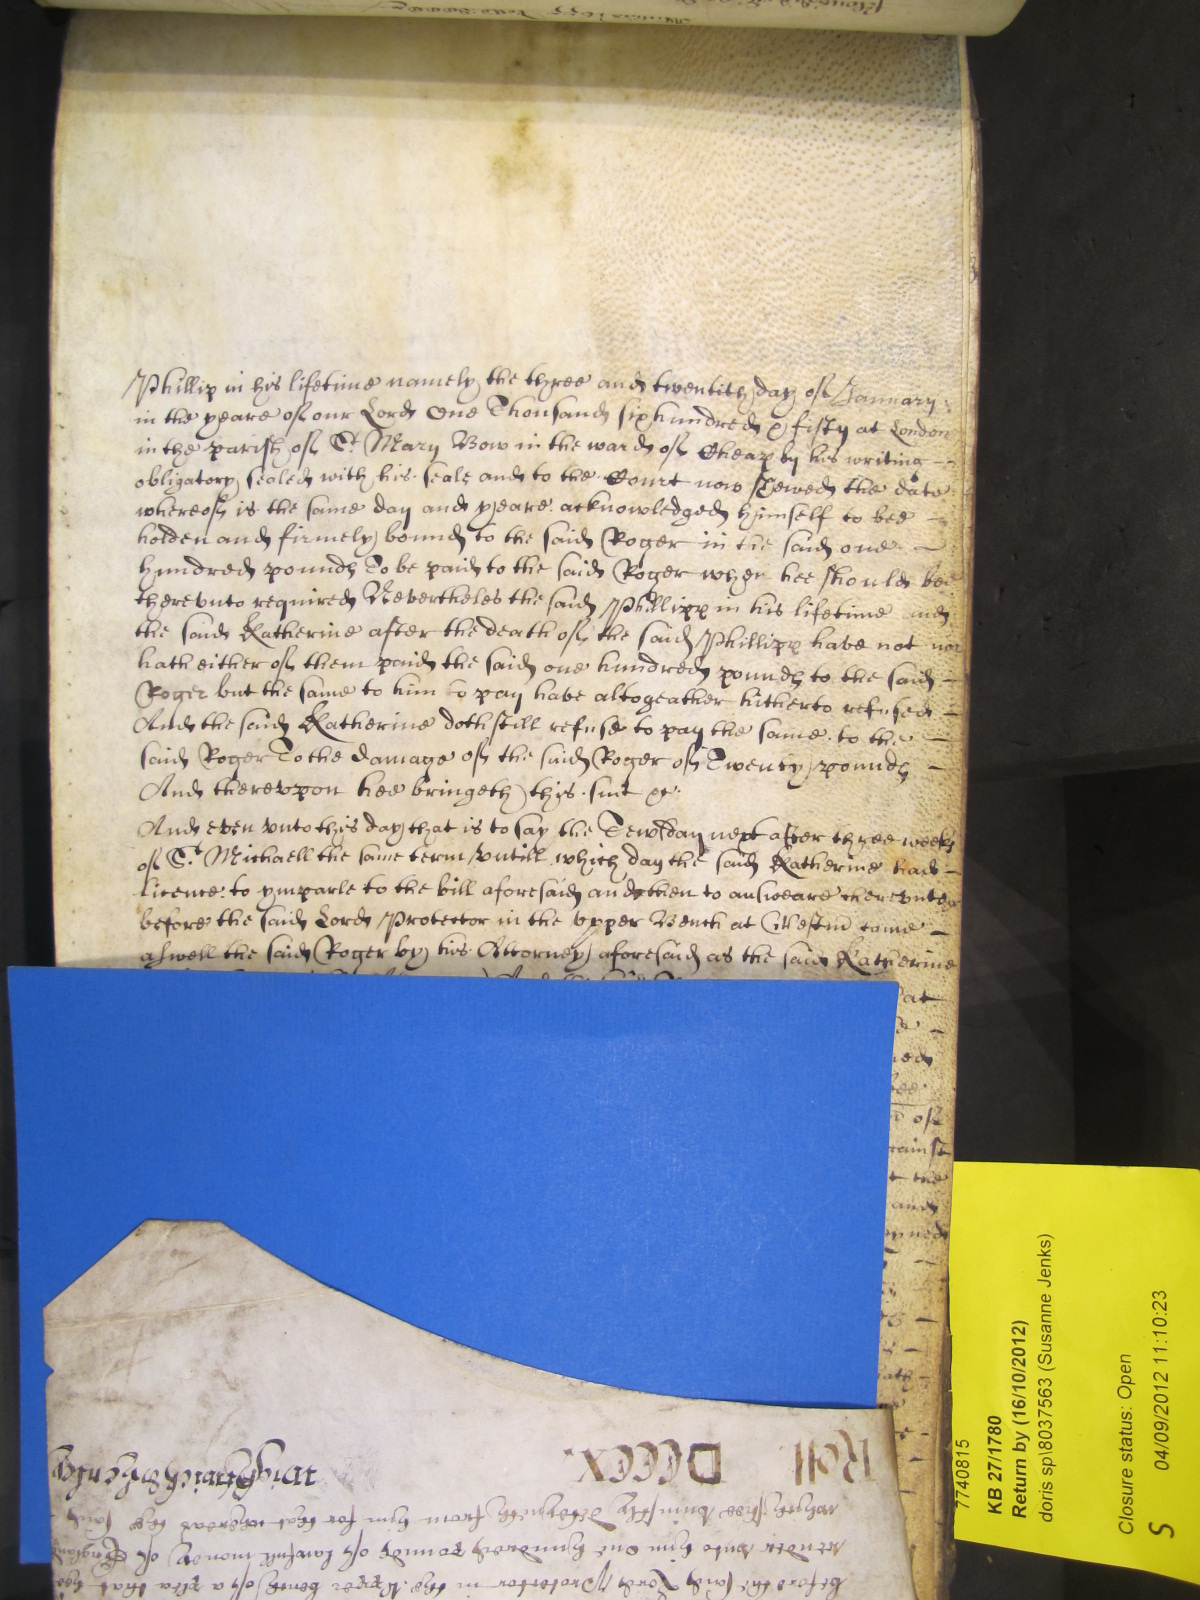 Phillip in his lifetime namely the three and twentith day of January
in the yeare of our Lord One Thousand sixhundred & fifty at London
in the parish of St Mary Bow in the ward of Cheap by his writing
obligatory sealed with his seale and to the Court now shewed the date
whereof is the same day and yeare acknowledged himself to bee
holden and firmely bound to the said Roger in the said one
hundred pounds To be paid to the said Roger when hee should bee
therevnto required Nevertheles the said Phillipp in his lifetime and
the said Katherine after the death of the said Phillipp have not nor
hath either of them paid the said one hundred pounds to the said
Roger but the same to him to pay have altogeather hitherto refused
And the said Katherine doth still refuse to pay the same to the
said Roger To the damage of the said Roger of Twenty pounds
And therevpon hee bringeth this suit &c
And even vnto this day that is to say the Tewsday next after three weeks
of St Michaell the same term vntill which day the said Katherine had
licence to ymparle to the bill aforesaid and then to answeare therevnto
before the said Lord Protector in the vpper Bench at Westm come
aswell the said Roger by his Attorney aforesaid as the said Katherine
at
of
the
and
before the said Lord Protector in the Vpper bench of a plea that hee
render vnto him one hundred pounds of lawfull money of England
which shee vniustly deteyneth from him for that whereas the said
Roll DCCCX
7740815
KB 27/1780
Return by (16/10/2012)
doris sp\8037563 (Susanne Jenks)
Closure status: Open
04/09/2012 11:10:23
S